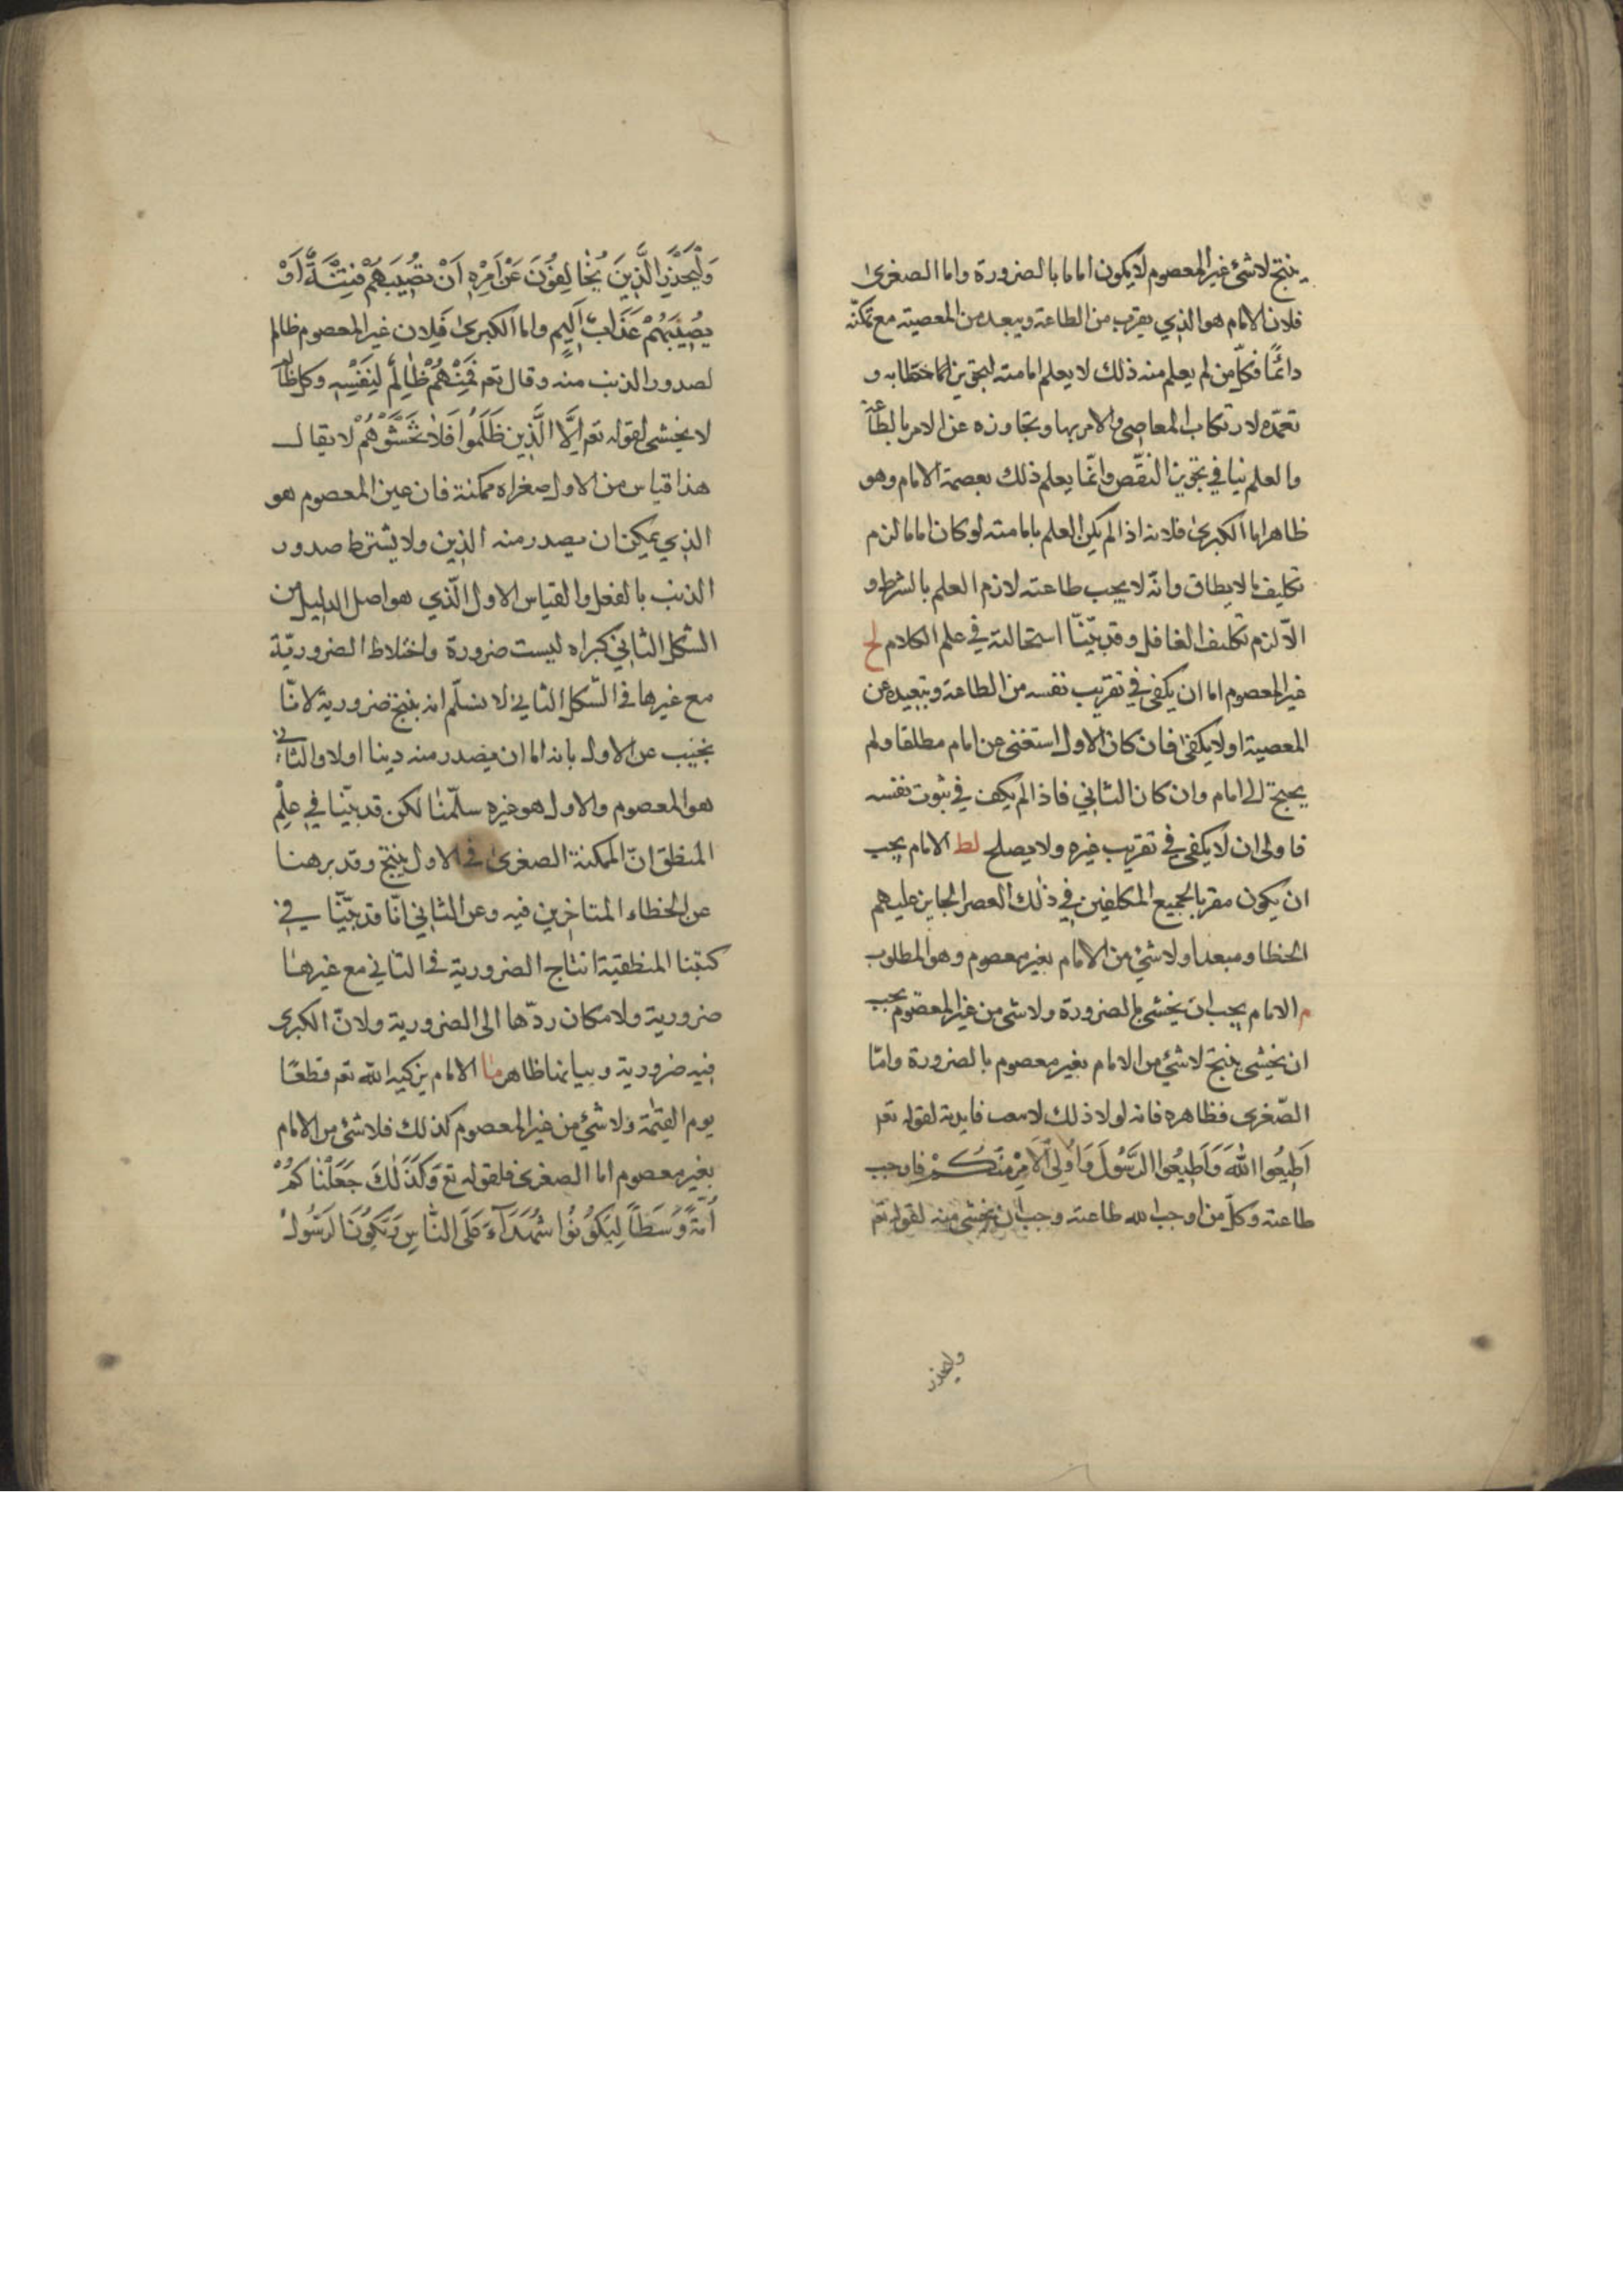 ينتج لا شئ غير المعصوم لا يكون اماما بالضرورة واما الصغرى
فلان الامام هو الذي يقرب من الطاعة ويبعد من المعصية مع تمكنه
دائمًا فكلّ من لم يعلم منه ذلك لا يعلم امامته لتجويز و
تعمّده لارتكاب المعاصى والامر بها وتجاوزه عن الامر بالطاعة
والعلم ينافي تجويز النقّص وانّما يعلم ذلك بعصمة الامام وهو
ظاهر اما الكبرى فلانه اذا لم يكن العلم بامامته لو كان اماما لزم
تكليف ما لا يطاق وانّه لا يجب طاعته لازم العلم بالشرط و
الّا لزم تكليف الغافل وقد بيّنّا استحالته في علم الكلام لح
غير المعصوم اما ان يكفى في تقريب نفسه من الطاعة وتبعيده عن
المعصية او لا يكفى فان كان الاول استغنى عن امام مطلقا ولم
يحتج الى امام وان كان الثاني فاذا لم يكف في ثبوت نفسه
فاولى ان لا يكفى في تقريب غيره ولا يصلح لط الامام يجب
ان يكون مقربا لجميع المكلفين في ذلك العصر الجايز عليهم
الخطا ومبعدا ولا شئ من الامام بغير معصوم وهو المطلوب
م الامام يجب ان يخشى بالضرورة ولا شى من غير المعصوم يجب
ان يخشى ينتج لا شئ من الامام بغير معصوم بالضرورة وامّا
الصّغرى فظاهره فانه لولا ذلك فايدته لقوله تعم
اَطِيعُوا اللهَ وَاَطِيعُوا الرَّسُولَ وَاُولِى الْاَمْرِ مِنْكُمْ فاوجب
طاعته وكلّ من اوجب الله طاعته وجب ان يخشى منه لقوله تعم
وليحذر
وَلْيَحْذَرِ الَّذِينَ يُخَالِفُونَ عَنْ اَمْرِهِ اَنْ تُصِيبَهُمْ فِتْنَةٌ اَوْ
يُصِيبَهُمْ عَذَابٌ اَلِيمٌ واما الكبرى فلان غير المعصوم ظالم
لصدور الذنب منه وقال تعم فَمِنْهُمْ ظَالِمٌ لِنَفْسِهِ وكل ظالم
لا يخشى لقوله تعم اِلَّا الَّذِينَ ظَلَمُوا فَلَا تَخْشَوْهُمْ لا يقال
هذا قياس من الاول صغراه ممكنة فان غير المعصوم هو
الذي يمكن ان يصدر منه الذين ولا يشترط صدور
الذنب بالفعل والقياس الاول الّذي هو اصل الدليل من
الشكل الثاني كبراه ليست ضرورة واختلاط الضروريّة
مع غيرها في الشكل الثاني لا نسلّم انه ينتج ضرورية لانّا
نجيب عن الاول بانه اما ان يصدر منه دينا اولا والثانى
هو المعصوم والاول هو غيره سلّمنا لكن قد بيّنا في علم
المنطق انّ الممكنة الصغرى في الاول ينتج وقد برهنا
عن الخطاء المتاخرين فيه وعن الثاني انّا قد بيّنّا في
كتبنا المنطقية انتاج الضرورية في الثاني مع غيرها
ضرورية ولامكان ردّها الى الضرورية ولانّ الكبرى
فيه ضرورية وبيانها ظاهر ما الامام يزكيه الله تعم قطعًا
يوم القيٰمة ولا شئ من غير المعصوم كذلك فلا شئ من الامام
بغير معصوم اما الصغرى فلقوله تع وَكَذٰلِكَ جَعَلْنَاكُمْ
اُمَّةً وَسَطًا لِتَكُونُوا شُهَدَآءَ عَلَى النَّاسِ وَيَكُونَ الرَسُولُ